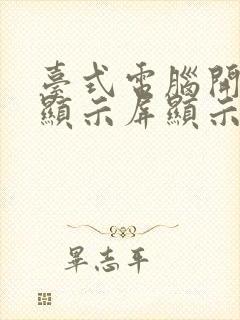 臺式電腦開
顯示屏顯示
畢志平